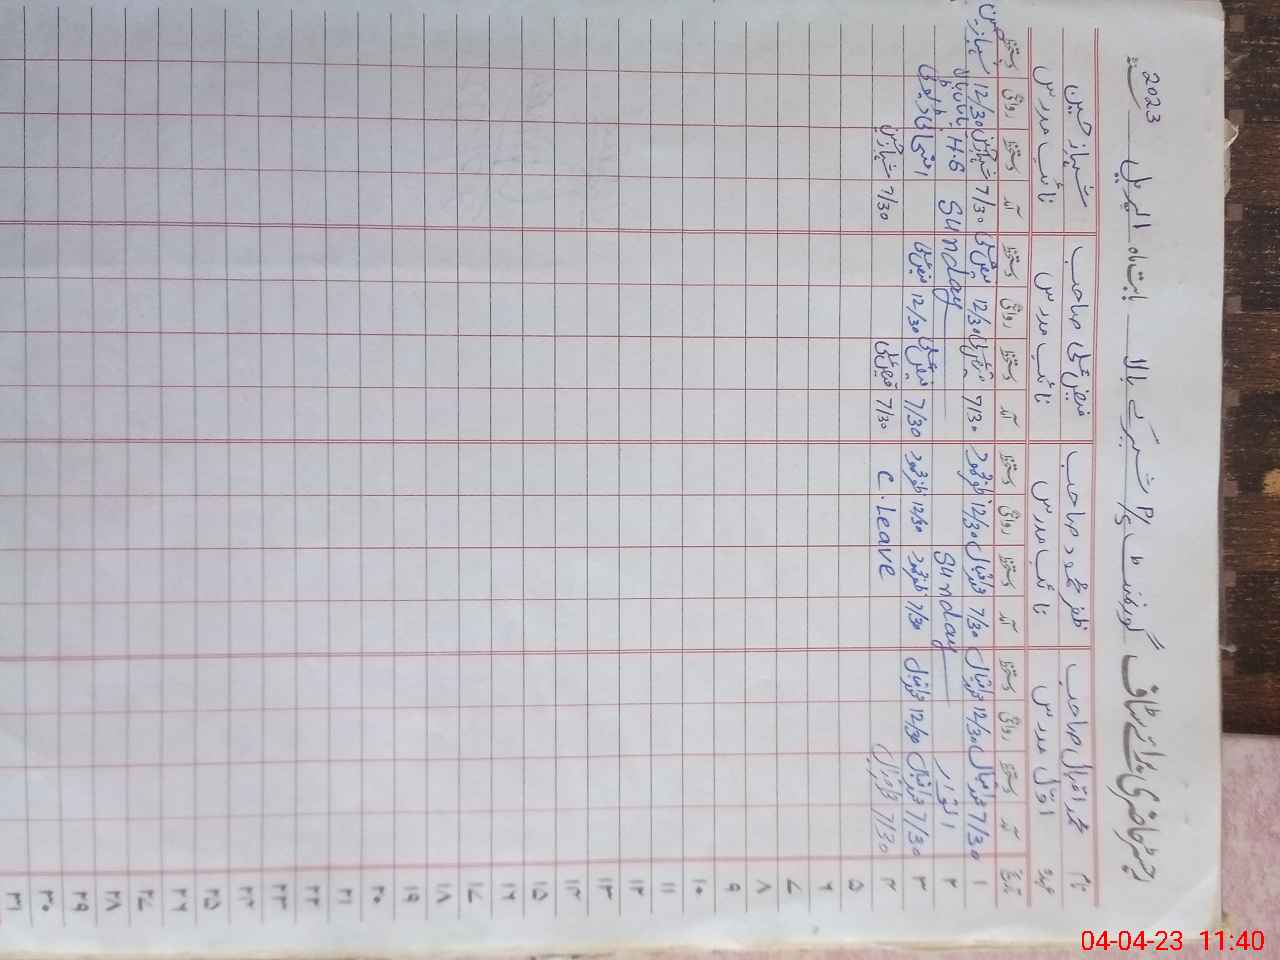 رجسٹر حاضری برائے سٹاف گورنمنٹ P/S شیر گے بالا بابت ماہ اپریل 2023
نام محمد اقبال صاحب ظفر محمود صاحب فیض علی صاحب شہباز حسین
عہدہ اول مدرس نائب مدرس نائب مدرس نائب مدرس
تاریخ آمد دستخط روانگی دستخط آمد دستخط روانگی دستخط آمد دستخط روانگی دستخط آمد دستخط روانگی دستخط
۱ 7/30 محمد اقبال 12/30 محمد اقبال 7/30 12/30 ظفر محمود 7/30 12/30 فیض علی 7/30 شہباز حسین 12/30 شہباز حسین
۲ اتوار Sunday Sunday
۳ 7/30 محمد اقبال 12/30 محمد اقبال 7/30 ظفر محمود 12/30 ظفر محمود 7/30 فیض علی 12/30 فیض علی
۴ 7/30 محمد اقبال C. Leave 7/30 فیض علی 7/30 شہباز حسین
۵
۶
۷
۸
۹
۱۰
۱۱
۱۲
۱۳
۱۴
۱۵
۱۶
۱۷
۱۸
۱۹
۲۰
۲۱
۲۲
۲۳
۲۴
۲۵
۲۶
۲۷
۲۸
۲۹
۳۰
۳۱
04-04-23 11:40